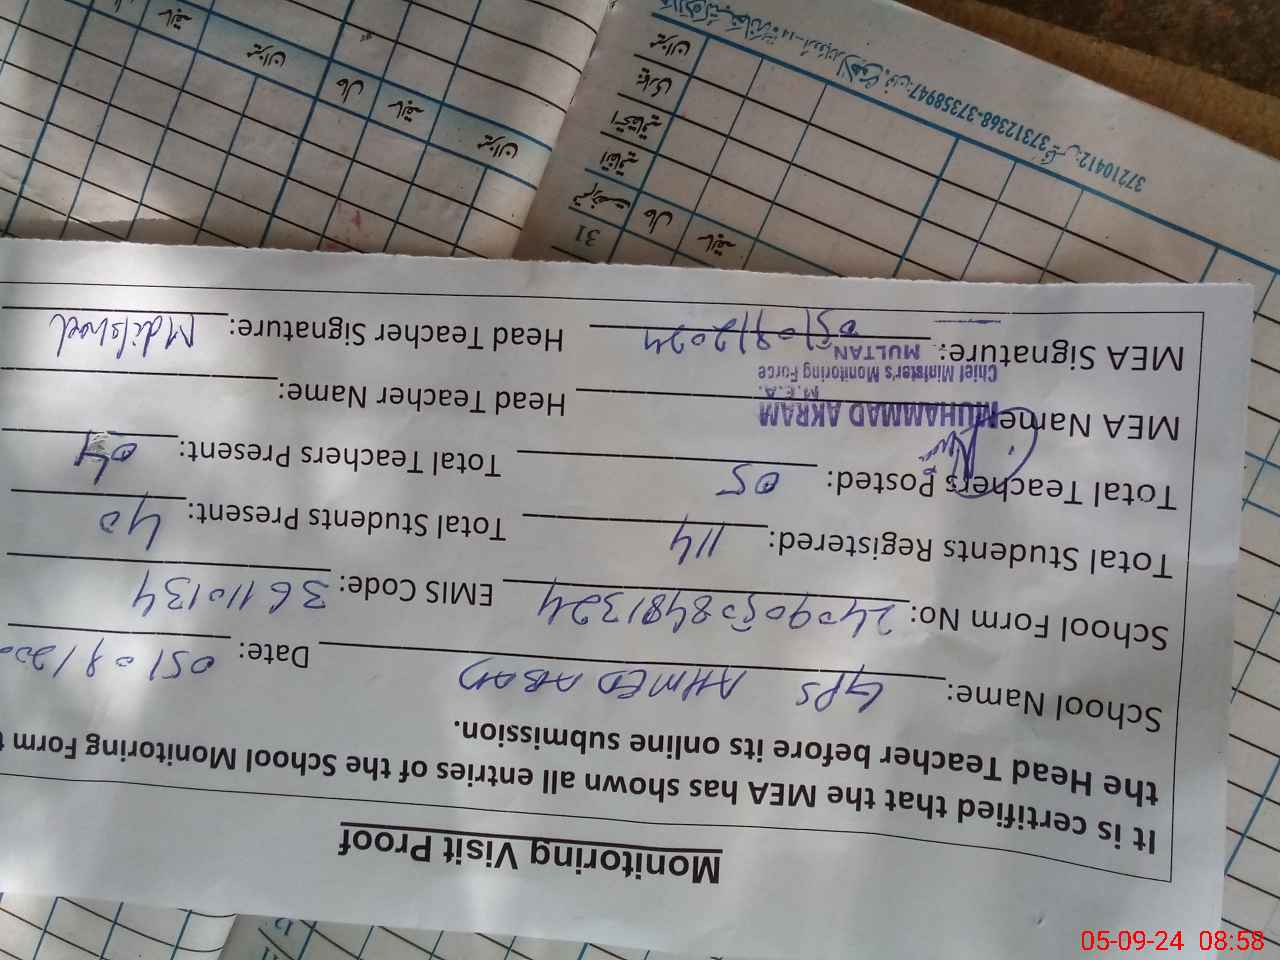 Monitoring Visit Proof
It is certified that the MEA has shown all entries of the School Monitoring Form
the Head Teacher before its online submission.
School Name: GPS AHMED ABAD Date: 05/09/20
School Form No: 24090508481324 EMIS Code: 36110134
Total Students Registered: 114 Total Students Present: 40
Total Teachers Posted: 05 Total Teachers Present: 04
MEA Name: MUHAMMAD AKRAM Head Teacher Name:
M.E.A.
Chief Minister's Monitoring Force
MULTAN
MEA Signature: 05/09/2024 Head Teacher Signature:
31
میزان
بقایا
حال
میزان
بقایا
حال
37210412 37312368-37358947
05-09-24 08:58